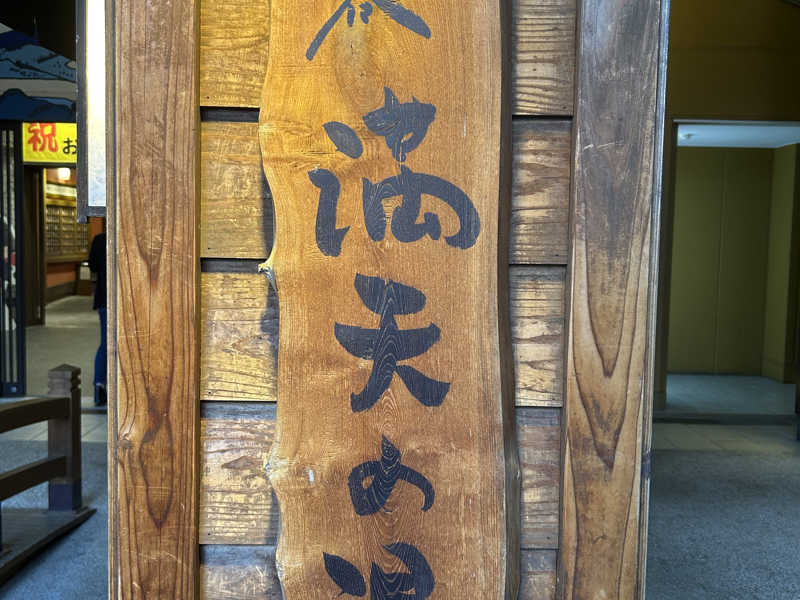 満天の湯
祝お